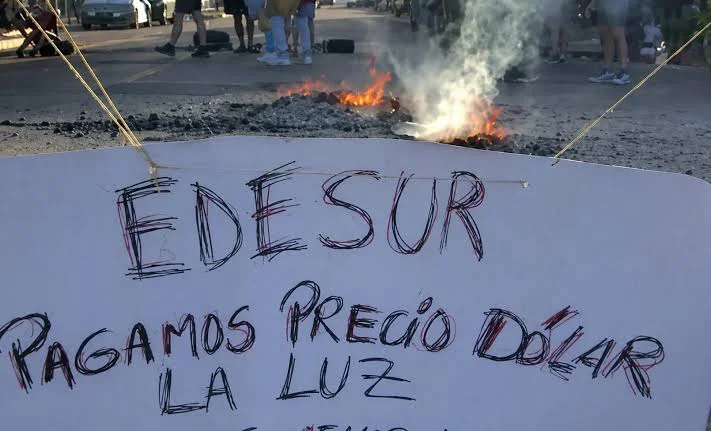 EDESUR
PAGAMOS PRECIO DÓLAR
LA LUZ